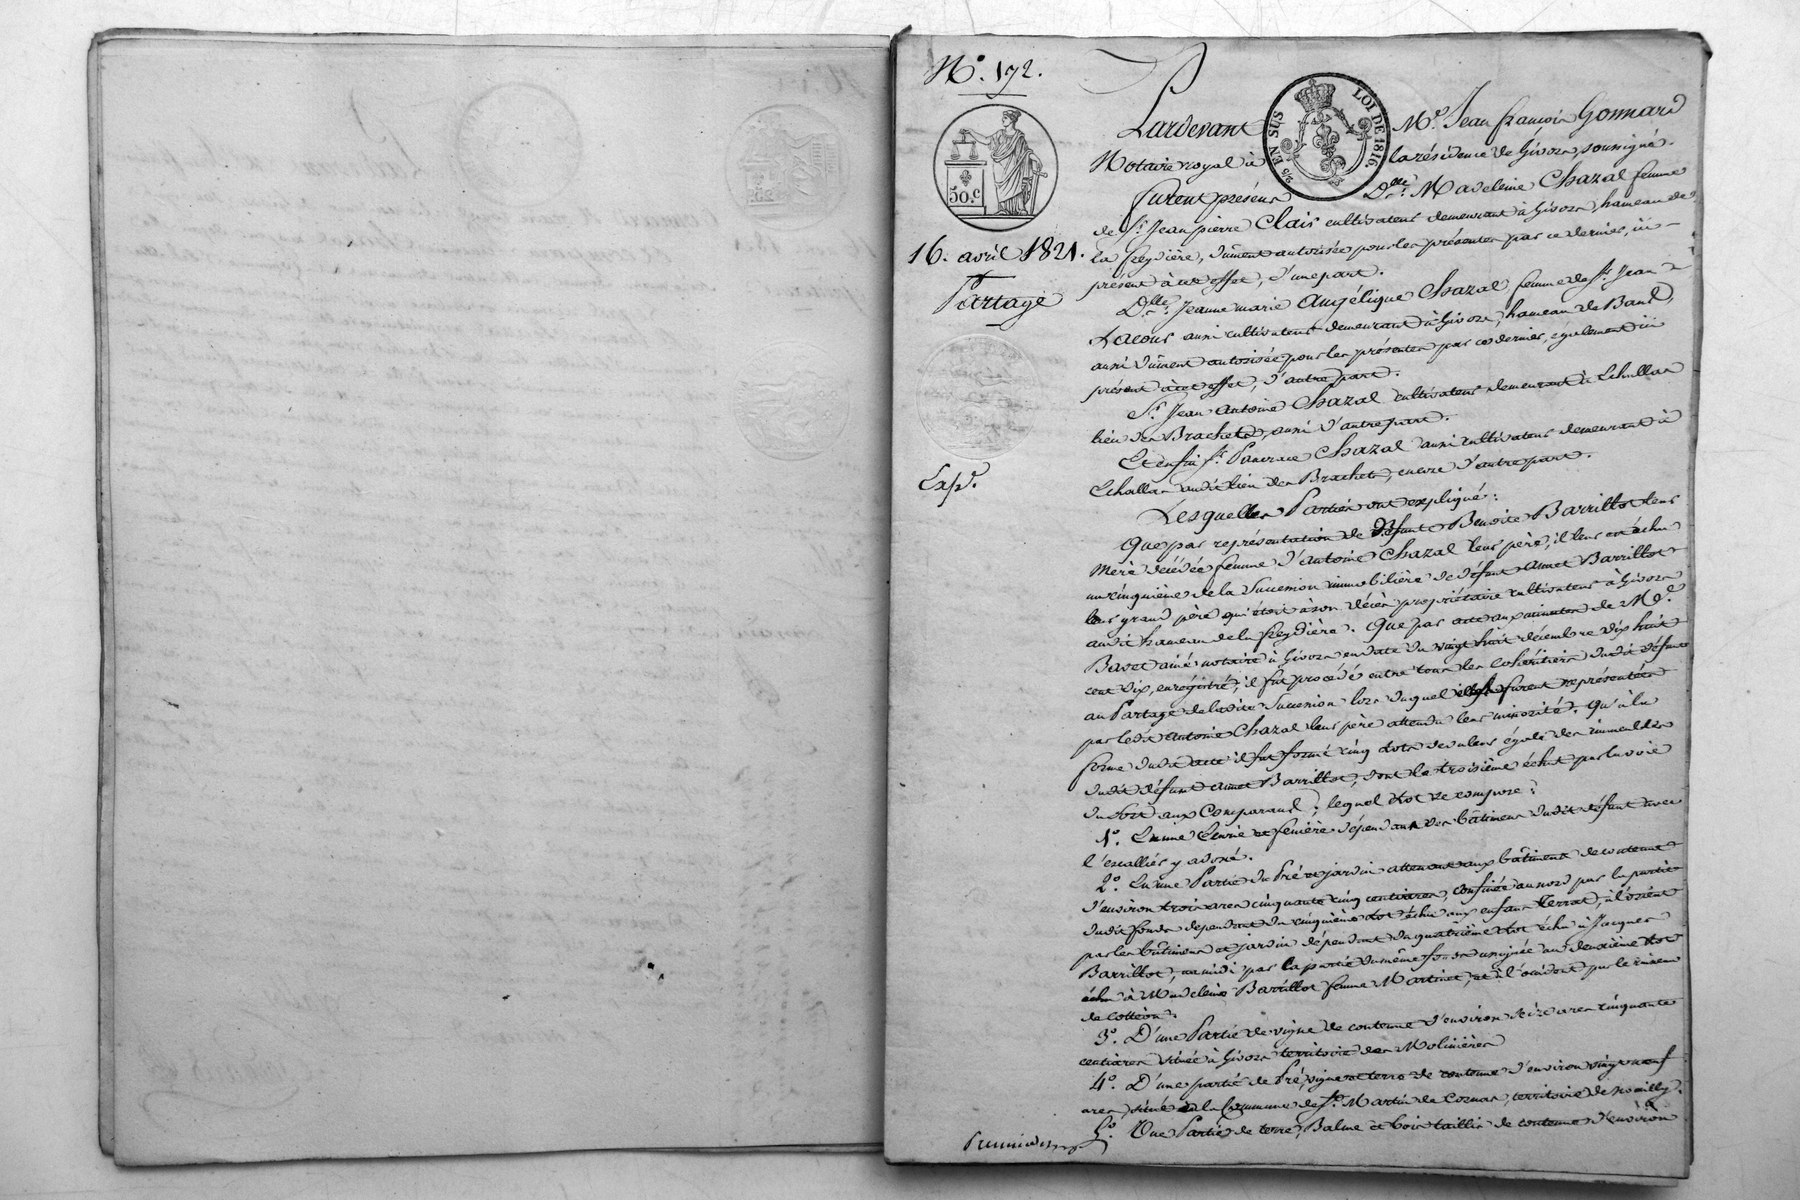 N.o 172.
Pardevant M.e Jean françois Gonnard
25 EN SUS
LOI DE 1816
50.c
Notaire royal à la résidence de Givors, soussigné.
furent présens D.lle Madeleine Chazal femme
de S.r Jean pierre Clair cultivateur demeurant à Givors, hameau de
16. avril 1821.
la freydière, dûment autorisée pour les présentes par ce dernier, ici
présent à cet effet, d'une part.
Partage
D.lle Jeanne marie Angélique Chazal, femme de S.r Jean
Lacour aussi cultivateur demeurant à Givors, hameau de Bans,
aussi dûment autorisée pour les présentes par ce dernier, également ici
présent à cet effet, d'autre part.
S.r Jean Antoine Chazal cultivateur demeurant à Echallas
lieu des Brachets, aussi d'autre part.
Et enfin S.r Pancrace Chazal aussi cultivateur demeurant à
Exp.
Echallas audit lieu des Brachets, encore d'autre part.
Lesquelles Parties ont expliqué:
Que par représentation de Défunte Benoite Barrillot leur
Mère décédée femme d'Antoine Chazal leur père, il leur est échu
un cinquième de la Succession immobilière de défunt Aimet Barrillot
leur grand père qui étoit à son décès propriétaire cultivateur à Givors
audit hameau de la freydière. Que par acte aux minutes de M.e
Bavet ainé notaire à Givors en date du vingt huit décembre dix huit
cent dix, enregistré, il fut procédé entre tous les cohéritiers dudit défunt
au Partage de ladite Succession lors duquel ils furent représentés
par ledit Antoine Chazal leur père attendu leur minorité. Qu'à la
forme dudit acte il fut formé cinq lots de valeur égale des immeubles
dudit défunt Aimet Barrillot, dont le troisième échut par la voie
du sort aux Comparans, lequel lot se compose:
1.o En une Ecurie et fenière dépendant des bâtimens dudit défunt avec
l'escallier y adossé.
2.o En une Partie du Pré et jardin attenant aux bâtiments de contenue
d'environ trois ares cinquante cinq centiares, confinée au nord par la partie
dudit fonds dépendant du cinquième lot échu aux enfans Terrat, à l'orient
par les bâtimens et jardin dépendant du quatrième lot échu à Jacques
Barrillot, au midi par la partie du même fonds assignée au deuxième lot
échu à Madeleine Barrillot femme Martinet, et à l'occident par le ruisseau
de Cotteon.
3.o D'une Partie de vigne de contenue d'environ seize ares cinquante
centiares située à Givors territoire des Molinières
4.o D'une partie de Pré, vigne et terre de contenue d'environ vingt neuf
ares, située en la Commune de S.t Martin de Cornas, territoire de
5.o Une Partie de terre, Balme et bois taillis de contenue d'environ